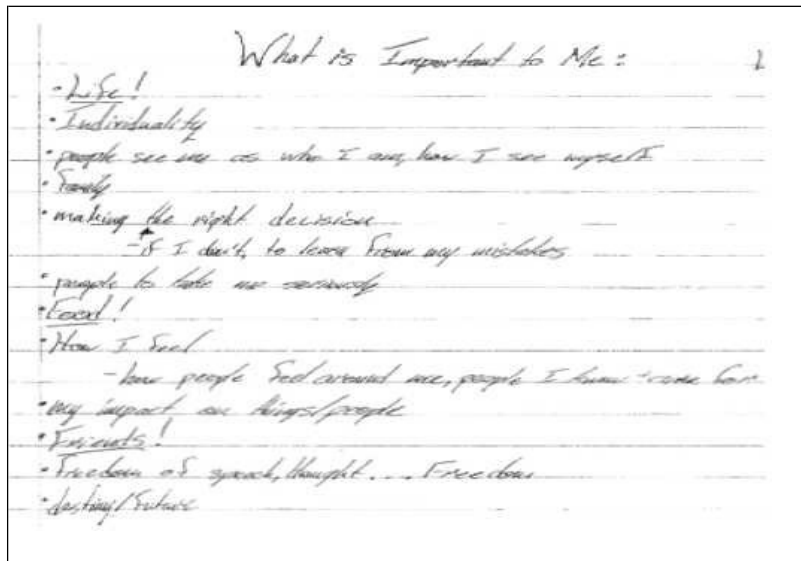 What is Important to Me:
• Life!
• Individuality
• people see me as who I am, how I see myself
• family
• making the right decision
- if I don't, to learn from my mistakes
• people to take me seriously
• Food!
• How I feel
- how people feel around me, people I know + care for
• my impact on things/people
• Friends!
• freedom of speech, thought.... Freedom
• destiny/future